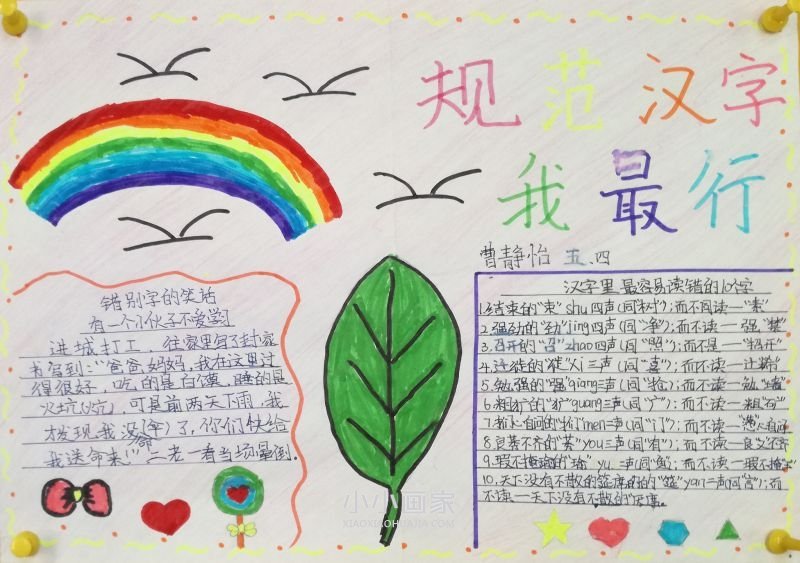 规范汉字
我最行
曹静怡 五.四
错别字的笑话
有一个小伙子不爱学习
进城打工，往家里写了封家
书写到："爸爸妈妈，我在这里过
得很好，吃的是白馍，睡的是
火坑(炕)，可是前两天下雨，我
才发现我没命(伞)了，你们快给
我送命来!"二老一看当场晕倒.
汉字里最容易读错的10个字
1.结束的"束"shu四声(同"树");而不同读一"素"
2.强劲的"劲"jing四声(同"净");而不读一强
3.召开的"召"zhao四声(同"照");而不是一"招开"
4.迁徙的"徙"xi三声(同"喜");而不读一迁
5.勉强的"强"qiang三声(同"抢");而不读一勉
6.粗犷的"犷"guang三声(同"广");而不读一粗
7.扪心自问的"扪"men一声(同"门");而不读一心自问
8.良莠不齐的"莠"you三声(同"有");而不读一良"不齐
9.瑕不掩瑜的"瑜"yu二声(同"鱼");而不读一瑕不掩
10.天下没有不散的筵席的"筵"yan二声同"言";而
不读一天下没有不散的席
小小画家
XIAOXIAOHUAJIA.COM